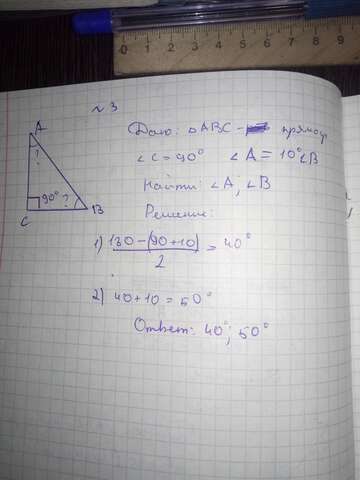 № 3
A
?
90° ?
C
B
Дано: △ABC - прямоуг
∠C = 90° ∠A = 10°∠B
Найти: ∠A; ∠B
Решение:
1) 180 - (90 + 10) / 2 = 40°
2) 40 + 10 = 50°
Ответ: 40°; 50°
2 3 4 5 6 7 8 9